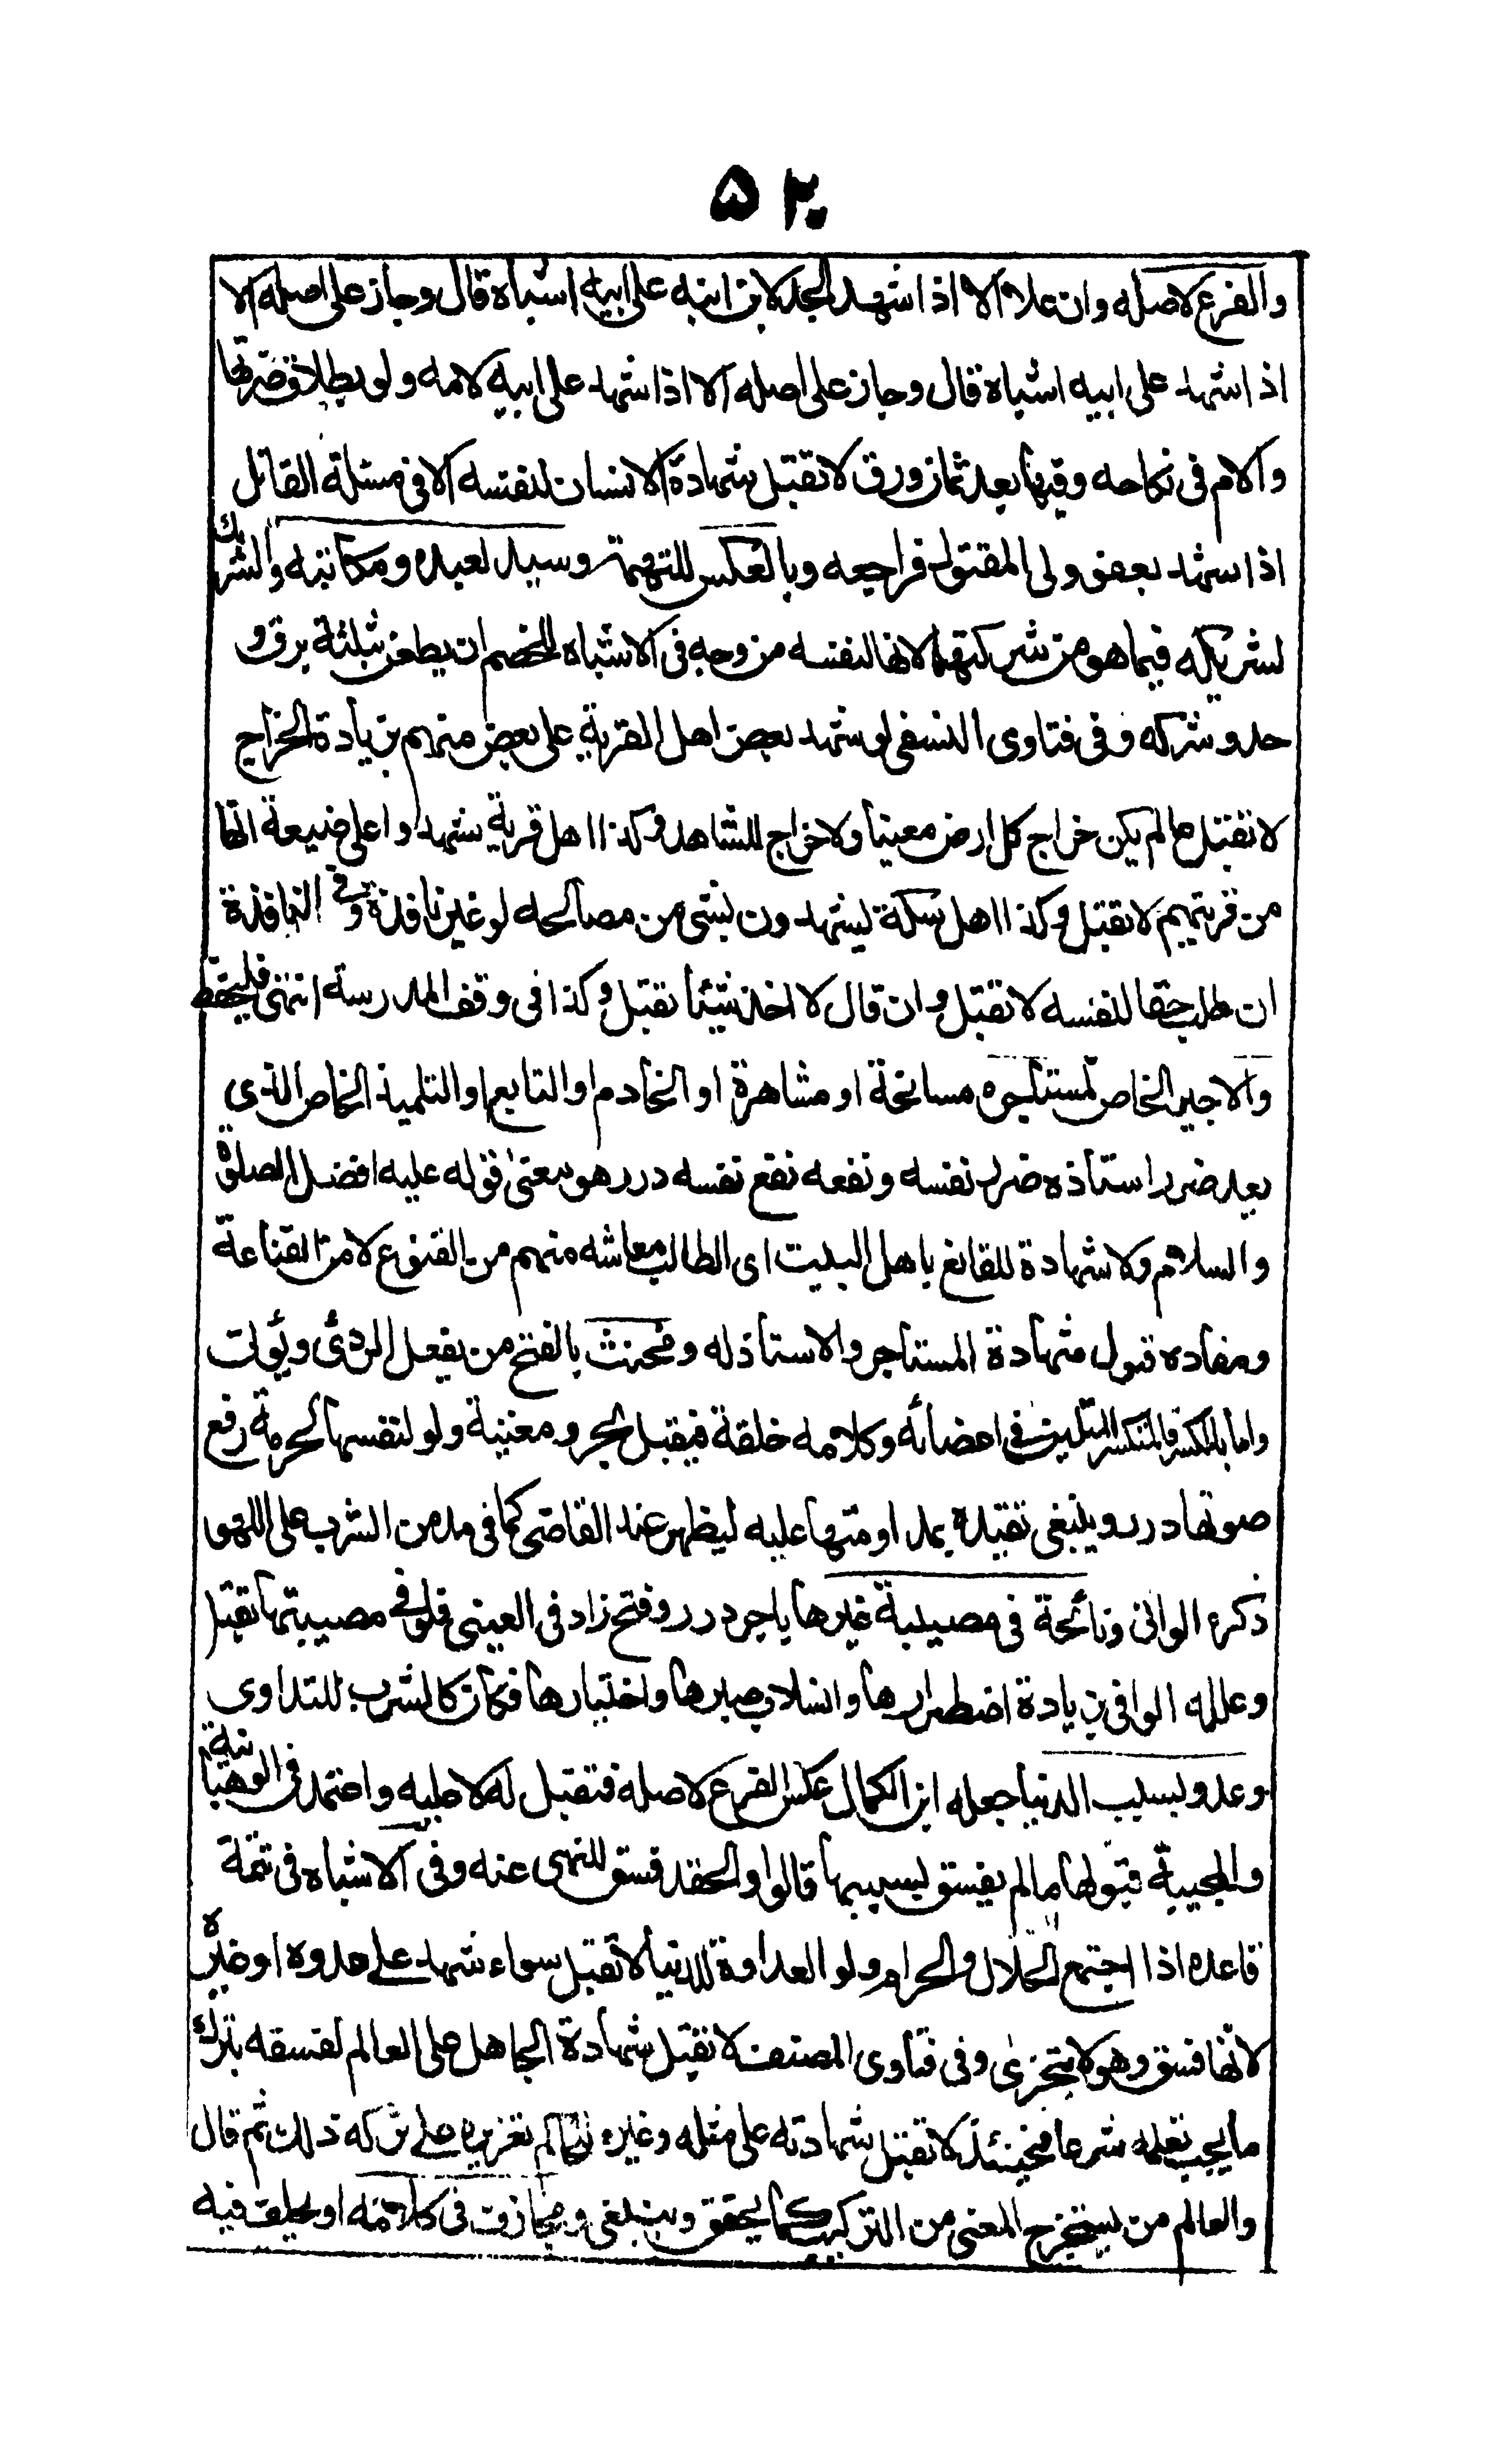 ۵۲۰
والفرع لاصله وان علا الا اذا شهد الجد لابن ابنه على ابيه اشباه قال وجاز على اصله الا
اذا شهد على ابيه اشباه قال وجاز على اصله الا اذا شهد على ابيه لامه ولو بطلاق ضرتها
والام فى نكاحه وفيها بعد ثمان ورق لا تقبل شهادة الانسان لنفسه الا فى مسئلة القاتل
اذا شهد بعفو ولى المقتول فراجعه وبالعكس للتهمة وسيد لعبده ومكاتبه والشريك
لشريكه فيما هو من شركتهما لانها لنفسه من وجه فى الاشباه للخصم ان يطعن بثلثة برق و
حد وشركه وفى فتاوى النسفى لو شهد بعض اهل القرية على بعض منهم بزيادة الخراج
لا تقبل ما لم يكن خراج كل ارض معينا ولا خراج للشاهد وكذا اهل قرية شهدوا على ضيعة انها
من قريتهم لا تقبل وكذا اهل سكة يشهدون بشئ من مصالحه لو غير نافذة وفى النافذة
ان طلب حقا لنفسه لا تقبل وان قال لا اخذ شيئا تقبل وكذا فى وقف المدرسة انتهى فليحفظ
والاجير الخاص لمستاجره مسانحة او مشاهرة او الخادم او التابع او التلميذ الخاص الذى
يعد ضرر استاذه ضرر نفسه ونفعه نفع نفسه درر هو معنى قوله عليه افضل الصلوة
والسلام ولا شهادة للقانع باهل البيت اى الطالب معاشه منهم من القنوع لا من القناعة
ومفاده قبول شهادة المستاجر والاستاذ له ومخنث بالفتح من يفعل الردئ ويؤتى
واما بالكسر فالمتكسر المتلين فى اعضائه وكلامه خلقة فيقبل بحر ومغنية ولو لنفسها لحرمة رفع
صوتها درر وينبغى تقييده بمداومتها عليه ليظهر عند القاضى كما فى مدمن الشرب على اللهو
ذكره الوانى ونائحة فى مصيبة غيرها باجر درر وفتح زاد فى العينى فلو فى مصيبتها تقبل
وعلله الوانى بزيادة اضطرارها وانسلاب صبرها واختيارها فكان كالشرب للتداوى
وعدو بسبب الدنيا جعله ابن الكمال عكس الفرع لاصله فتقبل له لا عليه واعتمد فى الوهبانية
والمحبية قبولها ما لم يفسق بسببها قالوا والحقد فسق للنهى عنه وفى الاشباه فى تتمة
قاعده اذا اجتمع الحلال والحرام ولو العداوة للدنيا لا تقبل سواء شهد على عدوه او غيره
لانها فسق وهو لا يتجزى وفى فتاوى المصنف لا تقبل شهادة الجاهل على العالم لفسقه بترك
ما يجب تعلمه شرعا فحينئذ لا تقبل شهادته على مثله وغيره للحاكم تعزيره على تركه ذلك ثم قال
والعالم من يستخرج المعنى من التركيب كما يحقق وينبغى ومجازف فى كلامه او يحلف فيه